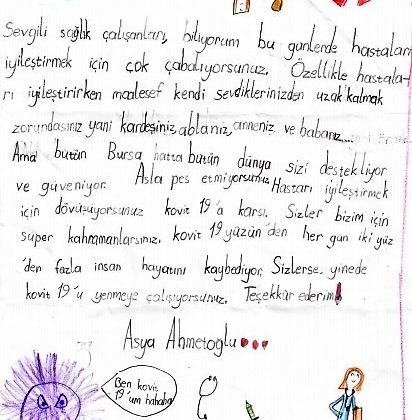 Sevgili sağlık çalışanları, biliyorum bu günlerde hastaları
iyileştirmek için çok çabalıyorsunuz. Özellikle hastala-
rı iyileştirirken maalesef kendi sevdiklerinizden uzak kalmak
zorundasınız yani kardeşiniz, ablanız, anneniz ve babanız...
Ama bütün Bursa hatta bütün dünya sizi destekliyor
ve güveniyor. Asla pes etmiyorsunuz Hastarı iyileştirmek
için dövüşüyorsunuz kovit 19'a karşı. Sizler bizim için
süper kahramanlarsınız. kovit 19 yüzün'den her gün iki yüz
'den fazla insan hayatını kaybediyor. Sizlerse yinede
kovit 19'u yenmeye çalışıyorsunuz. Teşekkür ederim!
Asya Ahmetoğlu
Ben kovit
19'um hahaha